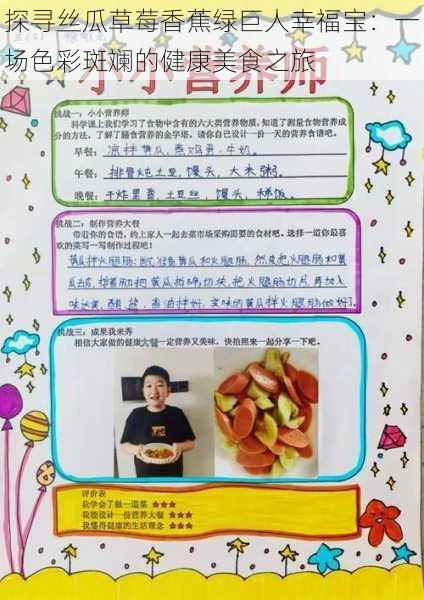 探寻丝瓜草莓香蕉绿巨人幸福宝：一
场色彩斑斓的健康美食之旅
小小营养师
挑战一：小小营养师
科学课上我们学习了食物中含有的六大类营养物质，知道了测量食物营养成
分的方法，了解了膳食营养的金字塔，请你自己设计一份一天的营养食谱吧。
早餐：凉拌黄瓜，煮鸡蛋，牛奶。
午餐：排骨炖土豆，馒头，大米粥。
晚餐：干炸里脊，土豆丝，馒头，稀饭。
挑战二：制作营养大餐
带着你的食谱，约上家人一起去菜市场采购需要的食材吧。选择一道你最喜
欢的菜写一写制作过程吧！
黄瓜拌火腿肠：
挑战三：成果我来秀
相信大家做的健康大餐一定营养又美味，快拍照来一起分享一下吧。
评价表
我学会了做一道菜 ★★★
我能设计一份营养大餐 ★★★
我懂得健康的生活理念 ★★★